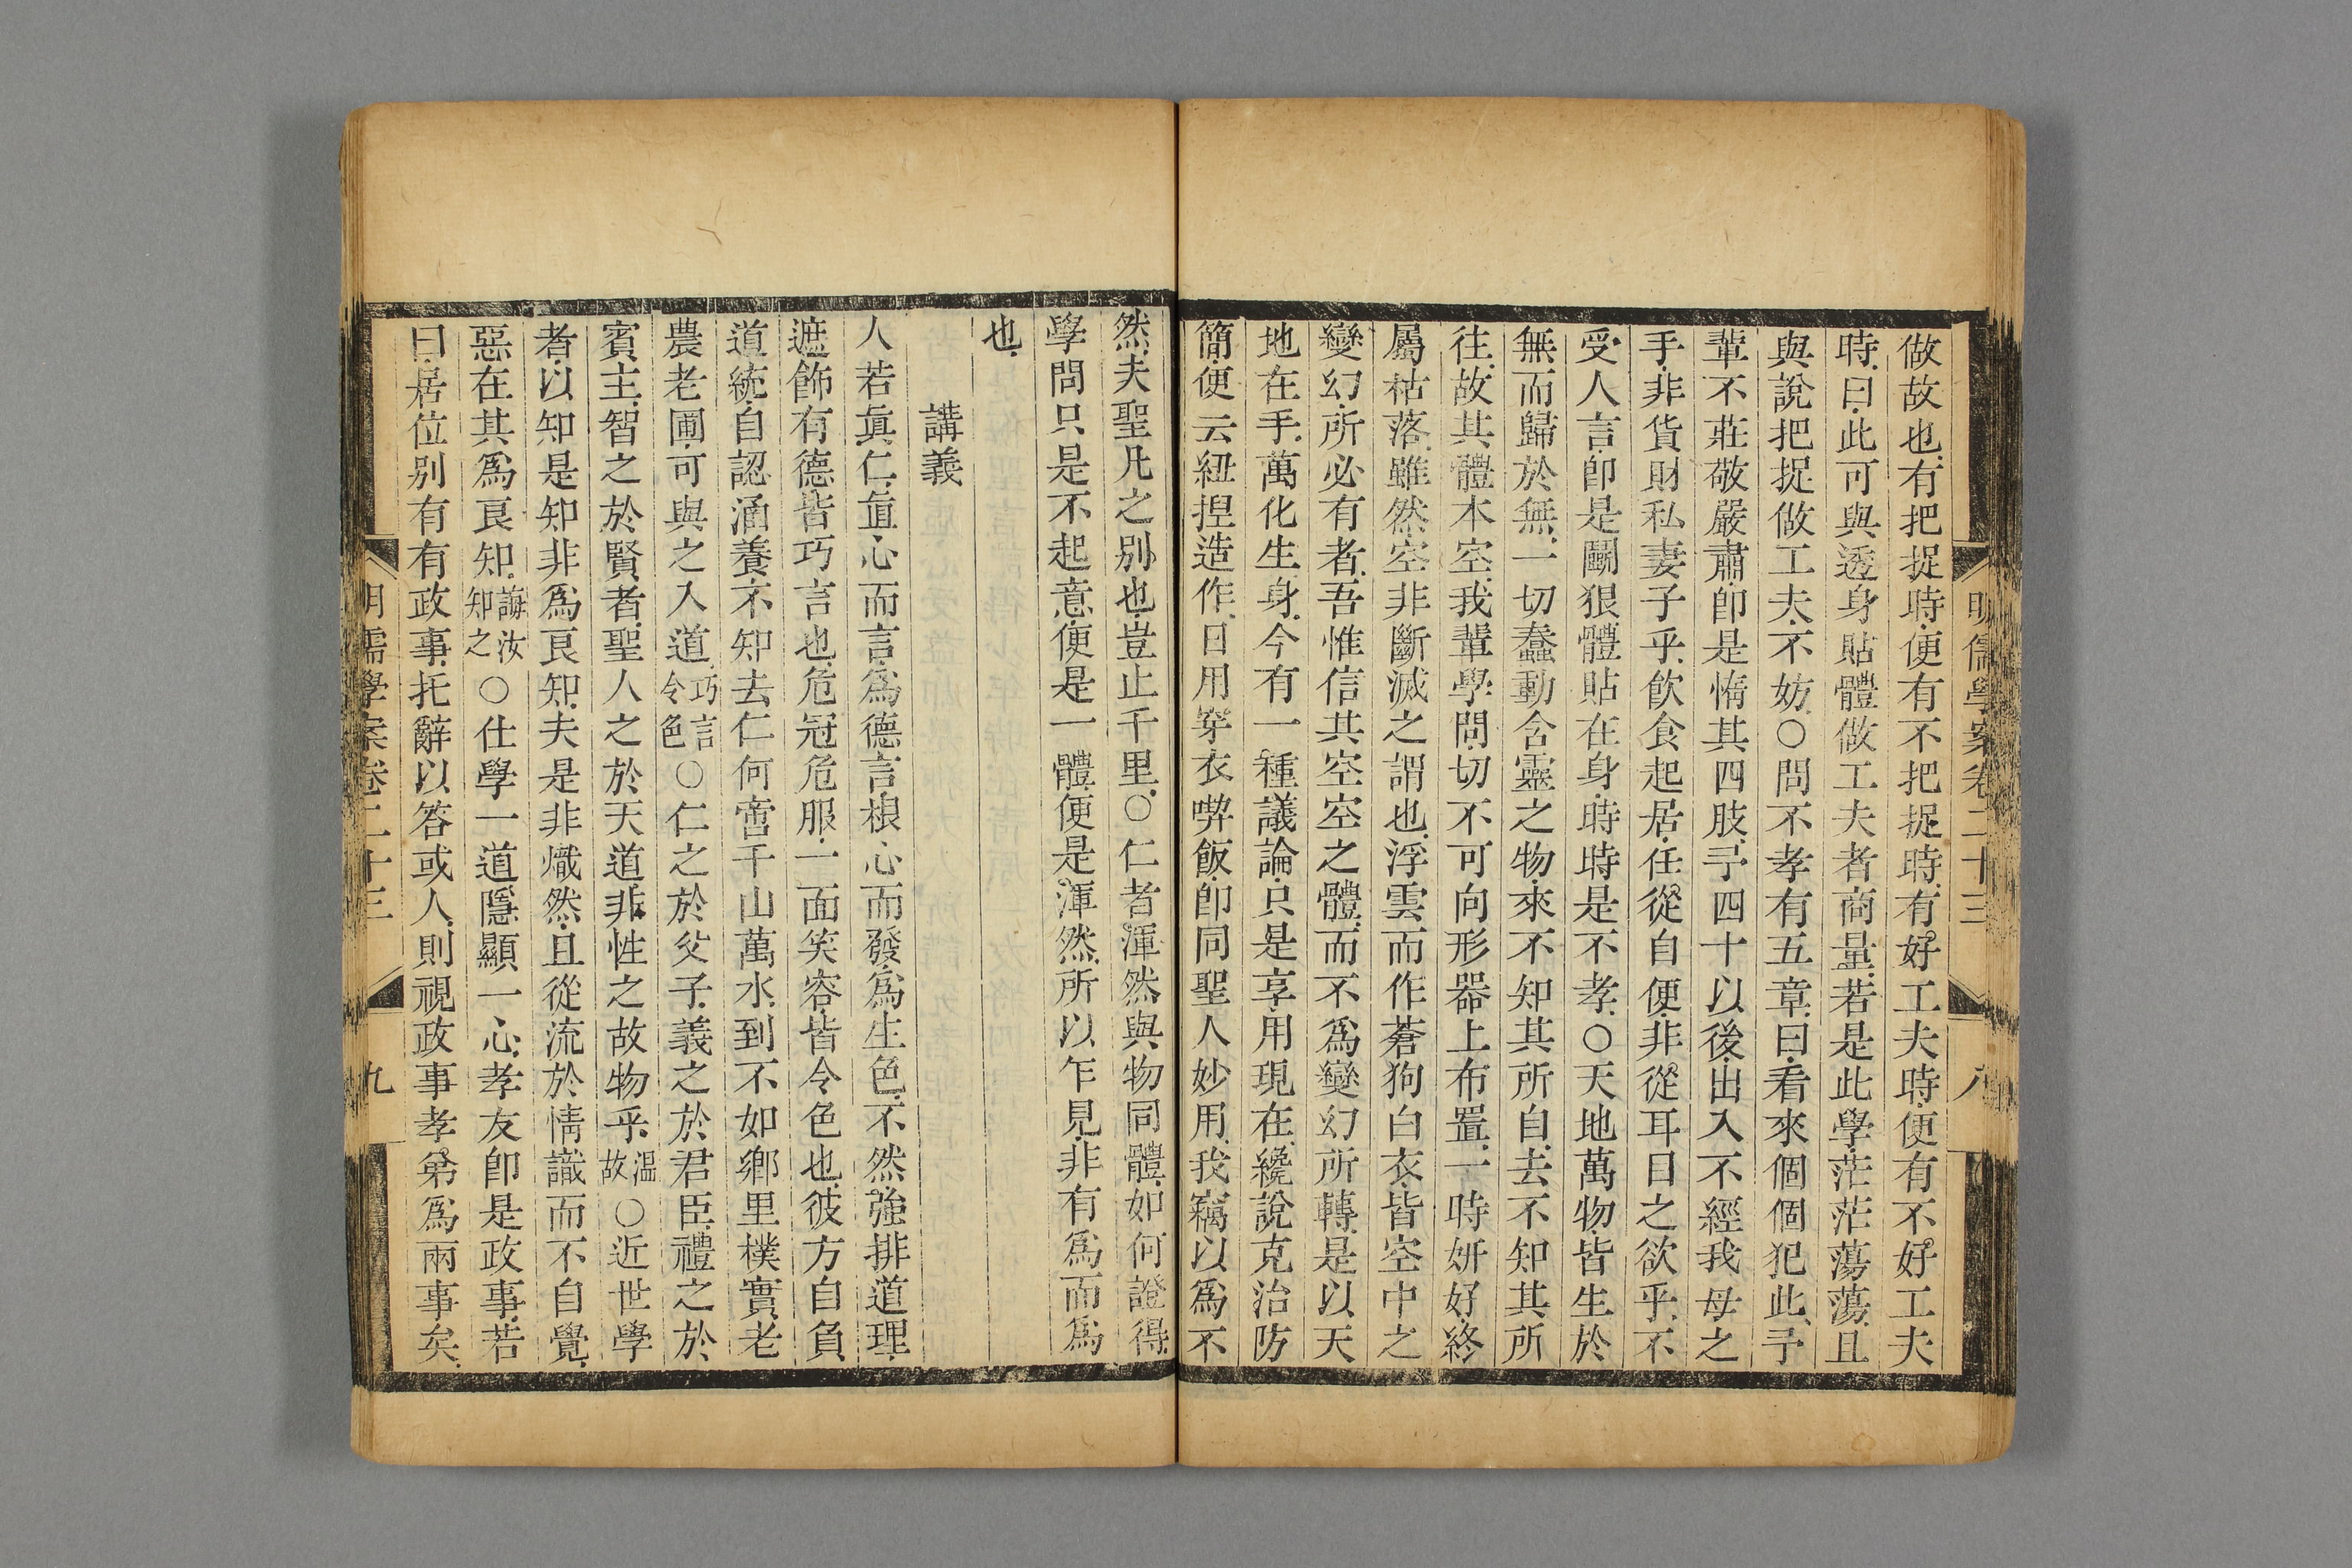 明儒學案卷二十三
八
做故也有把捉時便有不把捉時有好工夫時便有不好工夫
時曰此可與透身貼體做工夫者商量若是此學茫茫蕩蕩且
與說把捉做工夫不妨○問不孝有五章曰看來個個犯此予
輩不莊敬嚴肅卽是惰其四肢予四十以後出入不經我母之
手非貨財私妻子乎飲食起居任從自便非從耳目之欲乎不
受人言卽是鬭狠體貼在身時時是不孝○天地萬物皆生於
無而歸於無一切蠢動含靈之物來不知其所自去不知其所
往故其體本空我輩學問切不可向形器上布置一時妍好終
屬枯落雖然空非斷滅之謂也浮雲而作蒼狗白衣皆空中之
變幻所必有者吾惟信其空空之體而不爲變幻所轉是以天
地在手萬化生身今有一種議論只是享用現在纔說克治防
簡便云紐揑造作日用穿衣喫飯卽同聖人妙用我竊以爲不
然夫聖凡之別也豈止千里○仁者渾然與物同體如何證得
學問只是不起意便是一體便是渾然所以乍見非有爲而爲
也
講義
人若眞仁直心而言爲德言根心而發爲生色不然強排道理
遮飾有德皆巧言也危冠危服一面笑容皆令色也彼方自負
道統自認涵養不知去仁何啻千山萬水到不如鄉里樸實老
農老圃可與之入道巧言令色○仁之於父子義之於君臣禮之於
賓主智之於賢者聖人之於天道非性之故物乎溫故○近世學
者以知是知非爲良知夫是非熾然且從流於情識而不自覺
惡在其爲良知誨汝知之○仕學一道隱顯一心孝友卽是政事若
曰居位別有有政事托辭以答或人則視政事孝弟爲兩事矣
明儒學案卷二十三
九